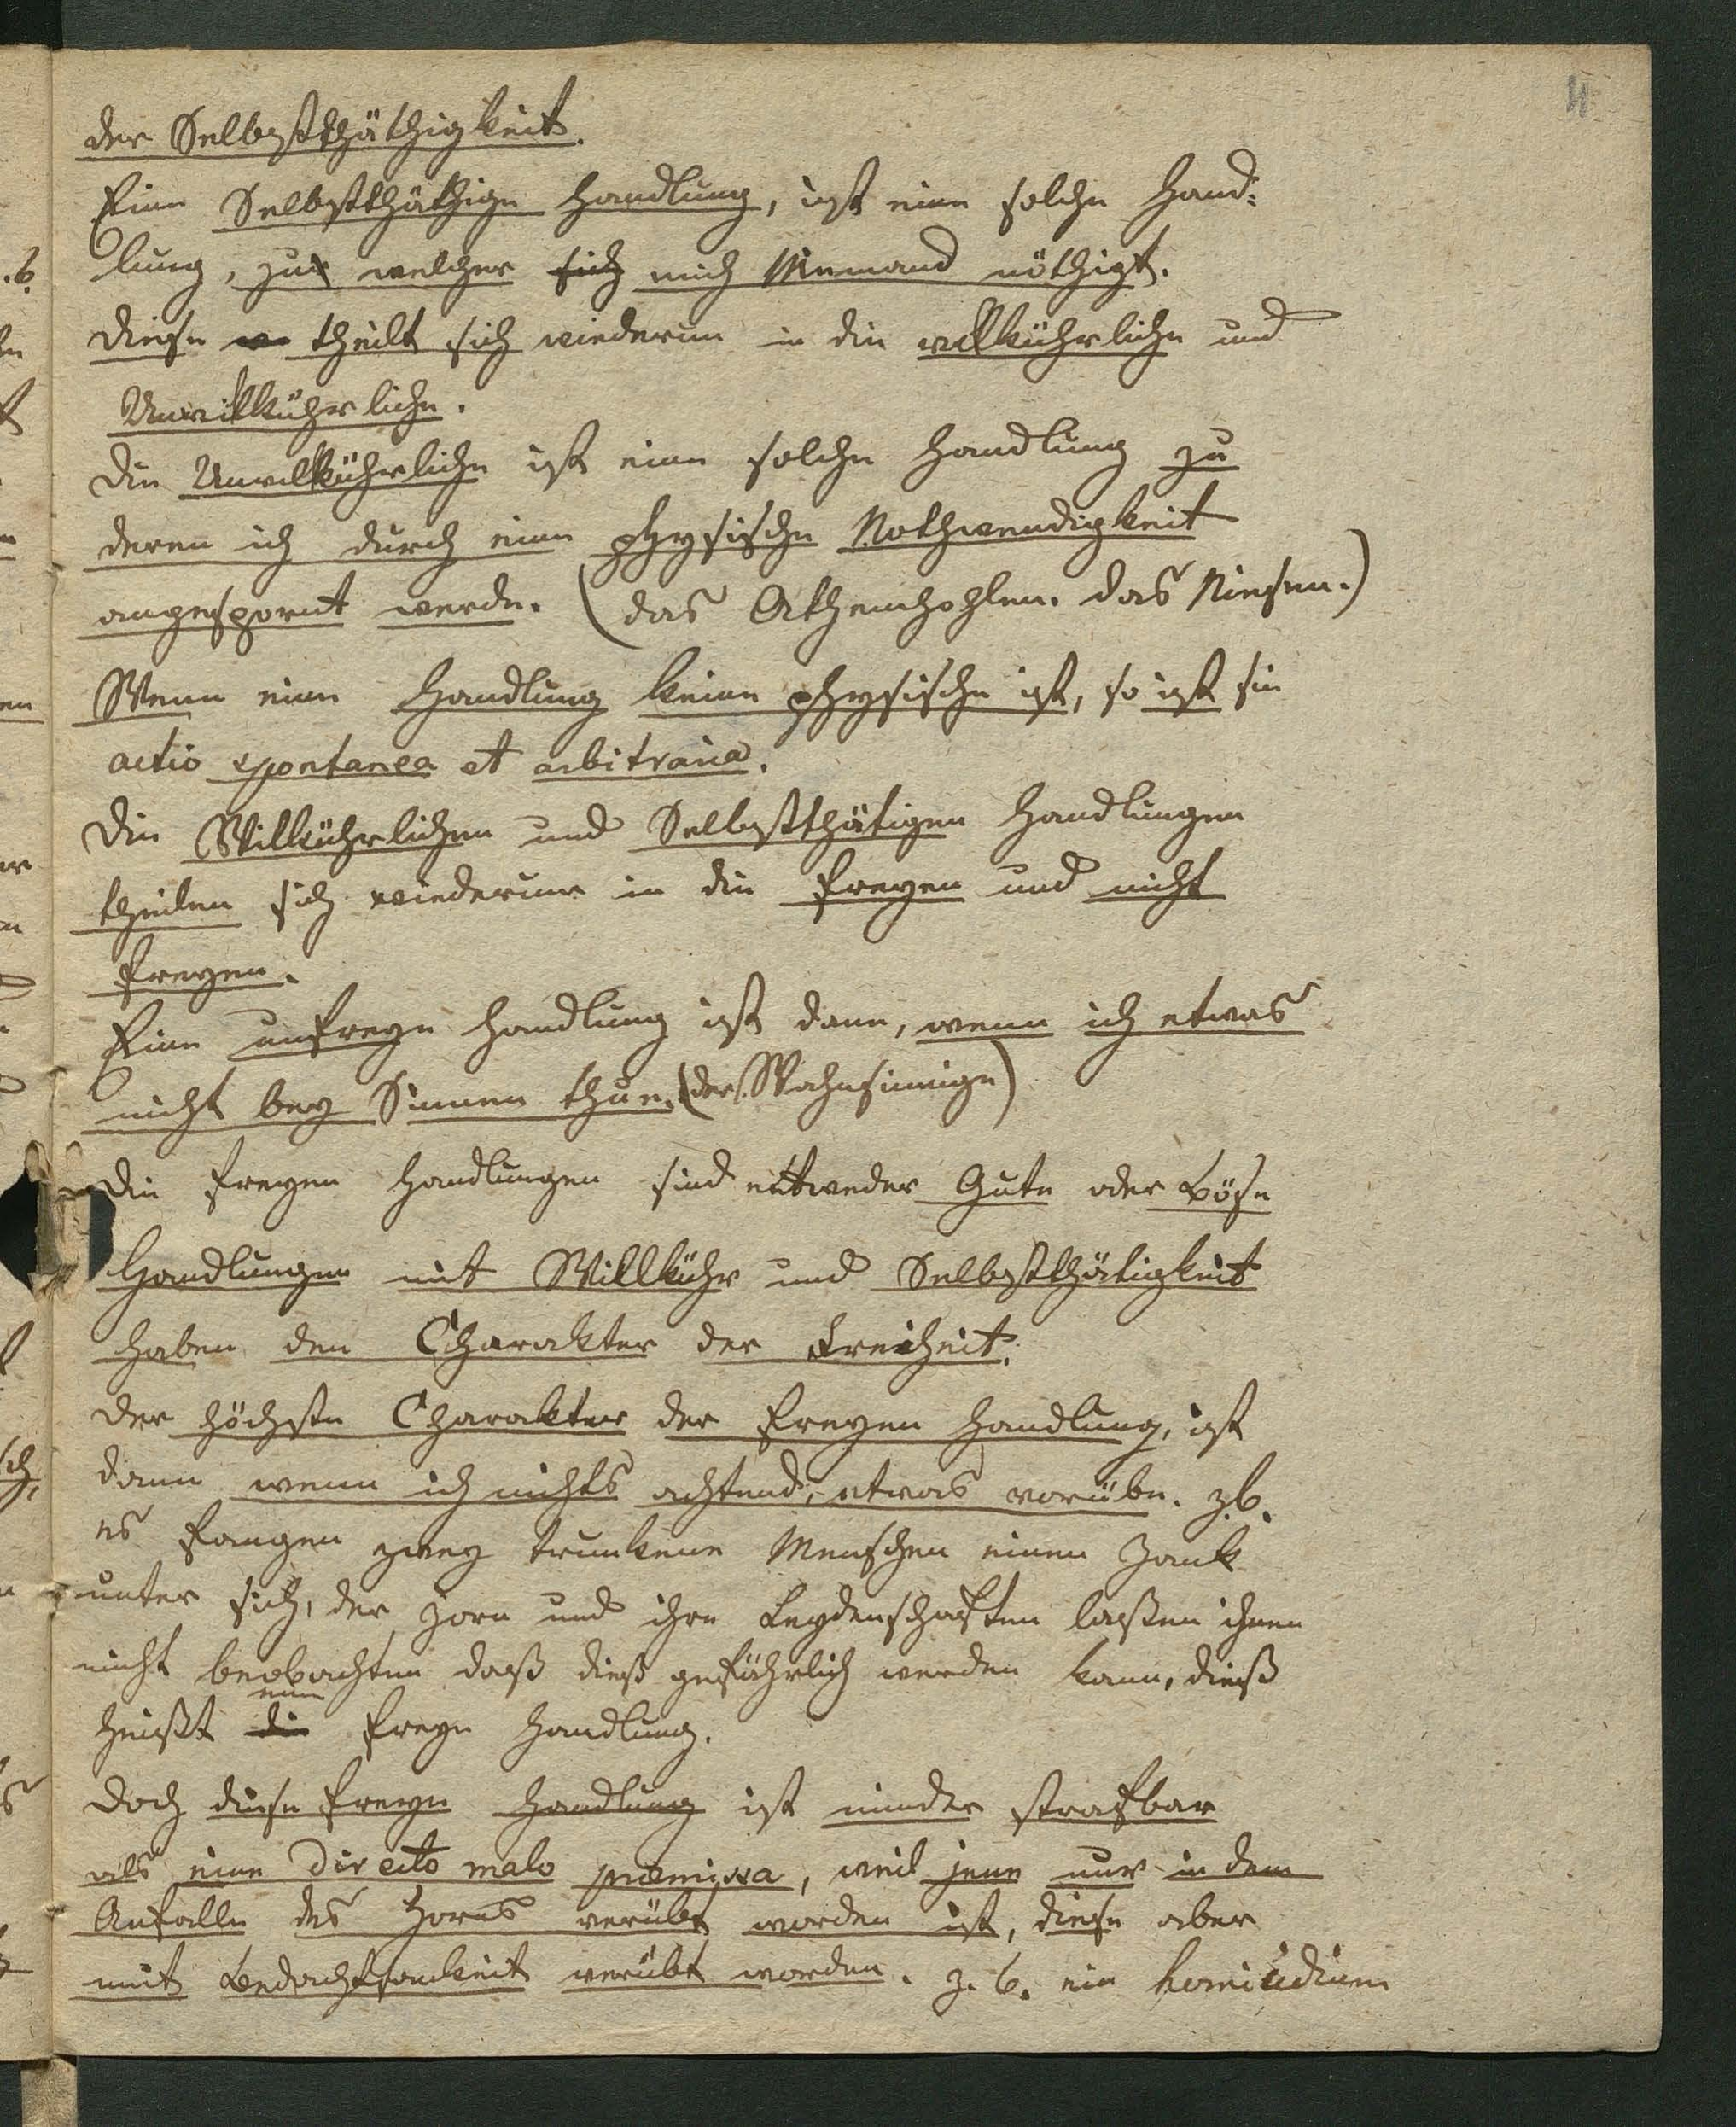 4
der Selbstthäthigkeit.
Eine Selbstthäthige Handlung, ist eine solche Hand-
lung, zu welcher sich mich Niemand nöthigt.
Diese theilt sich wiederum in die willkührliche und
Unwillkührliche.
Die Unwillkührliche ist eine solche Handlung zu
deren ich durch eine physische Nothwendigkeit
angespornt werde. (das Athemhohlen. das Niesen.)
Wenn eine Handlung keine physische ist, so ist sie
actio spontanea et arbitraria.
Die Willkührlichen und Selbstthätigen Handlungen
theilen sich wiederum in die freyen und nicht
freyen.
Eine unfreye Handlung ist dann, wenn ich etwas
nicht bey Sinnen thue. (der Wahnsinnige)
Die freyen Handlungen sind entweder Gute oder Böse
Handlungen mit Willkühr und Selbstthätigkeit
haben den Charakter der Freiheit.
Der höchste Charakter der freyen Handlung, ist
dann wenn ich nichts achtend, etwas verübe. z.b.
es fangen zwey trunkene Menschen einen Zank
unter sich, der Zorn und ihre Leydenschaften laßen ihnen
nicht beobachten daß dieß gefährlich werden kann, dieß
heißt die eine freye Handlung.
Doch diese freye Handlung ist minder strafbar
als eine directo malo praemissa, weil jene nur in dem
Anfalle des Zorns verübt worden ist, diese aber
mit Bedachtsamkeit verübt worden. z. b. ein homicidium